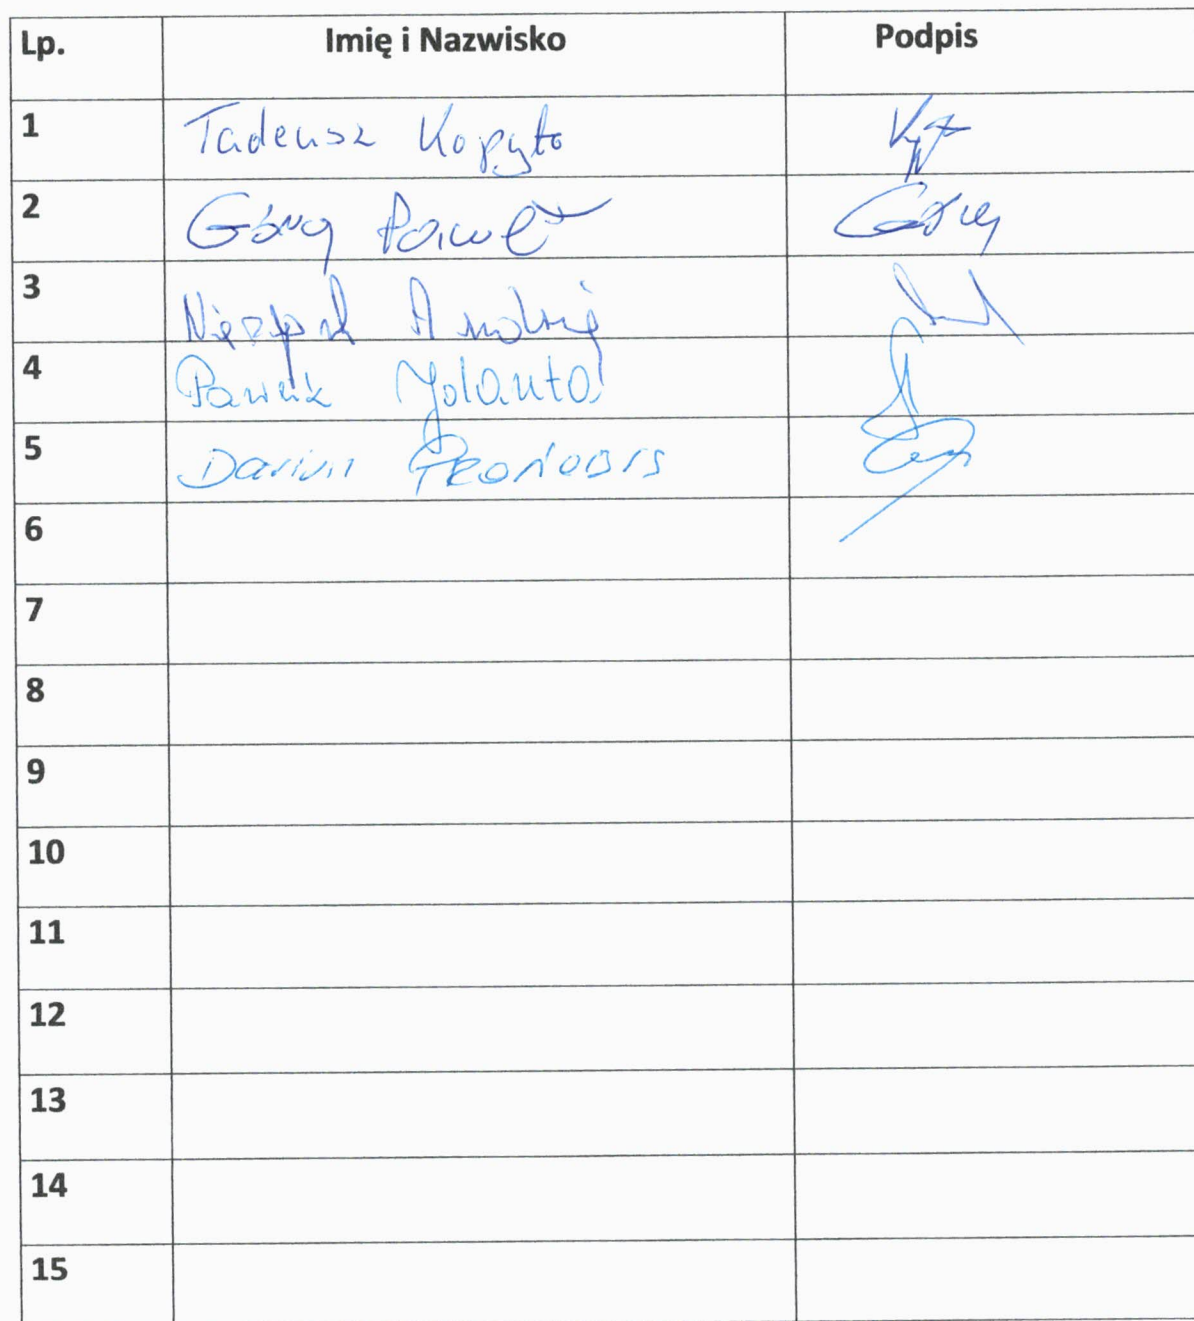 Lp. Imię i Nazwisko Podpis
1 Tadeusz Kopyto
2 Góry Paweł Góry
3 Andrzej
4 Pawlik Jolanta
5 Dariusz
6
7
8
9
10
11
12
13
14
15